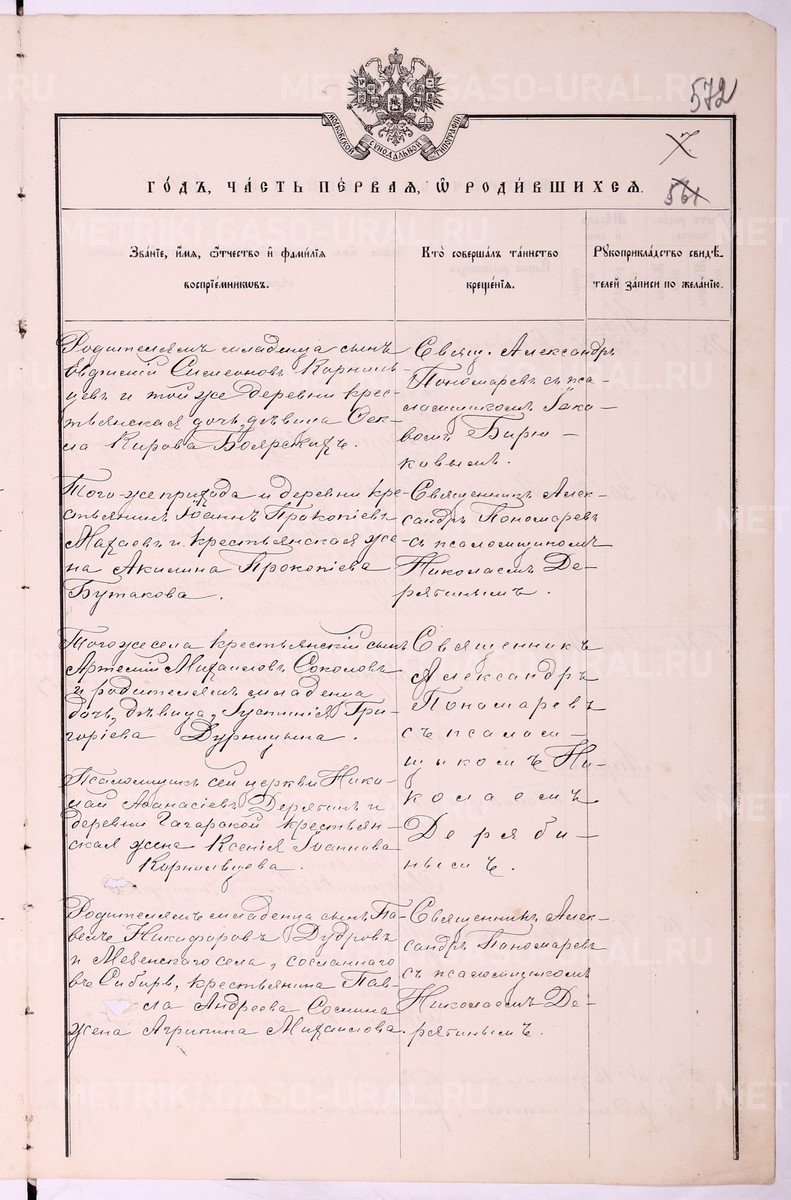 572
МОСКОВСКОЙ СѴНОДАЛЬНОЙ ТИПОГРАФІИ
7.
561
ГОДЪ, ЧАСТЬ ПЕРВАЯ, Ѿ РОДИВШИХСЯ.
Званіе, имя, ѿчество и фамилія
воспріемниковъ.
Кто совершалъ таинство
крещенія.
Рукоприкладство свидѣ-
телей записи по желанію.
Родителямъ младенца сынъ
Евдокій Симеоновъ Корниль-
цевъ и той же деревни крес-
тьянская дочь, дѣвица Фек-
ла Кирова Боярскихъ.
Свящ. Александръ
Пономаревъ съ пса-
ломщикомъ Іако-
вомъ Бирю-
ковымъ.
Того-же прихода и деревни кре-
стьянинъ Іоаннъ Прокопіевъ
Махаевъ и крестьянская же-
на Акилина Прокопіева
Бутакова.
Священникъ Алек-
сандръ Пономаревъ
съ псаломщикомъ
Николаемъ Де-
рягинымъ.
Того же села крестьянскій сынъ
Артемій Михаиловъ Соколовъ
и родителямъ младенца
дочь, дѣвица, Іустинія Гри-
горіева Дурницына.
Священникъ
Александръ
Пономаревъ
съ псалом-
щикомъ Ни-
колаемъ
Деряби-
нымъ.
Псаломщикъ сей церкви Нико-
лай Аѳанасіевъ Дерягинъ и
деревни Гагарской крестьян-
ская жена Ксенія Іоаннова
Корнильцева.
Родителямъ младенца сынъ Па-
велъ Никифоровъ Дудровъ
и Мезенскаго села, сосланнаго
въ Сибирь, крестьянина Пав-
ла Андреева Сомина
жена Агрипина Михаилова.
Священникъ Алек-
сандръ Пономаревъ
съ псаломщикомъ
Николаемъ Де-
рягинымъ.
METRIKI.GASO-URAL.RU